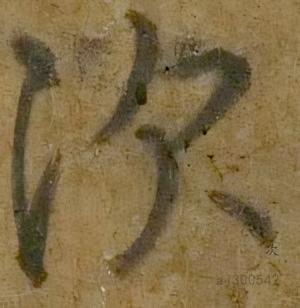 次
次
a4300542